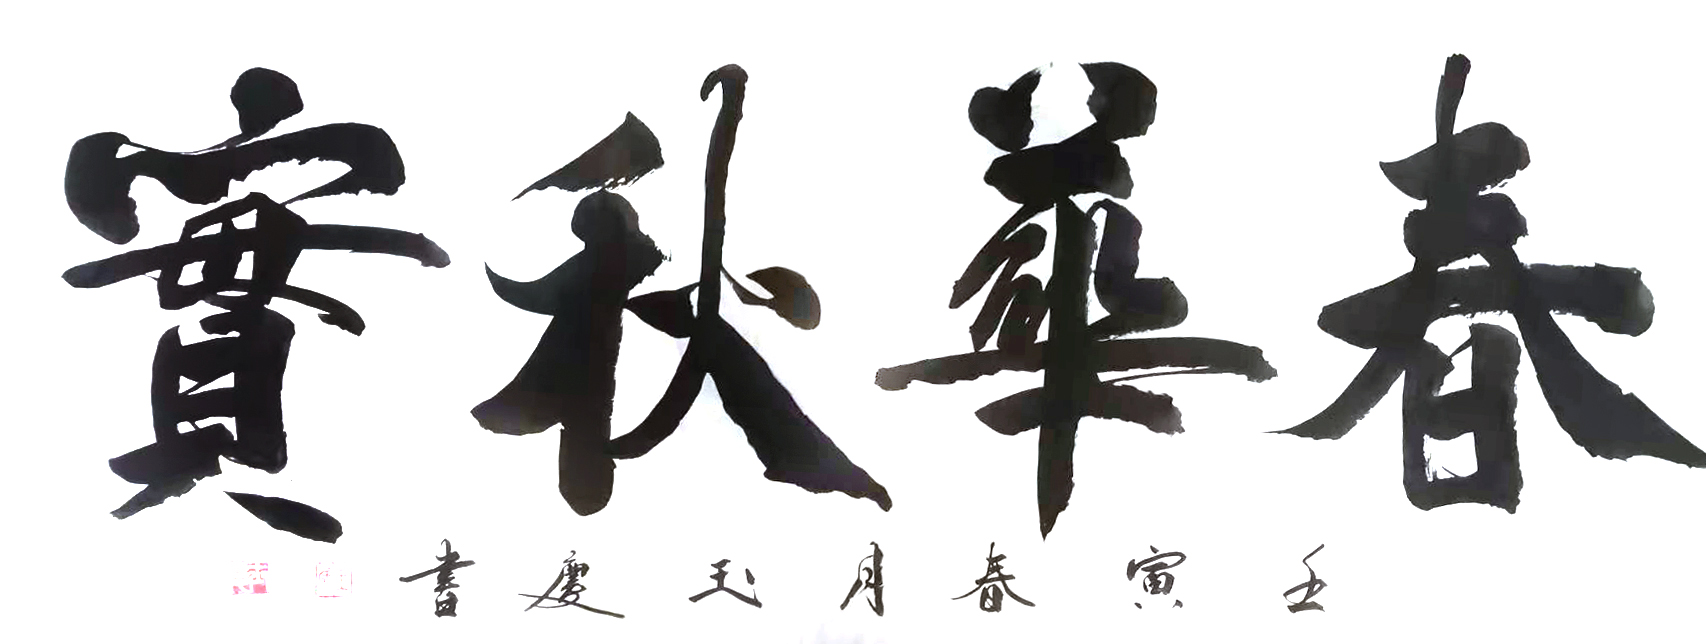 春華秋實
壬寅春月玉慶書